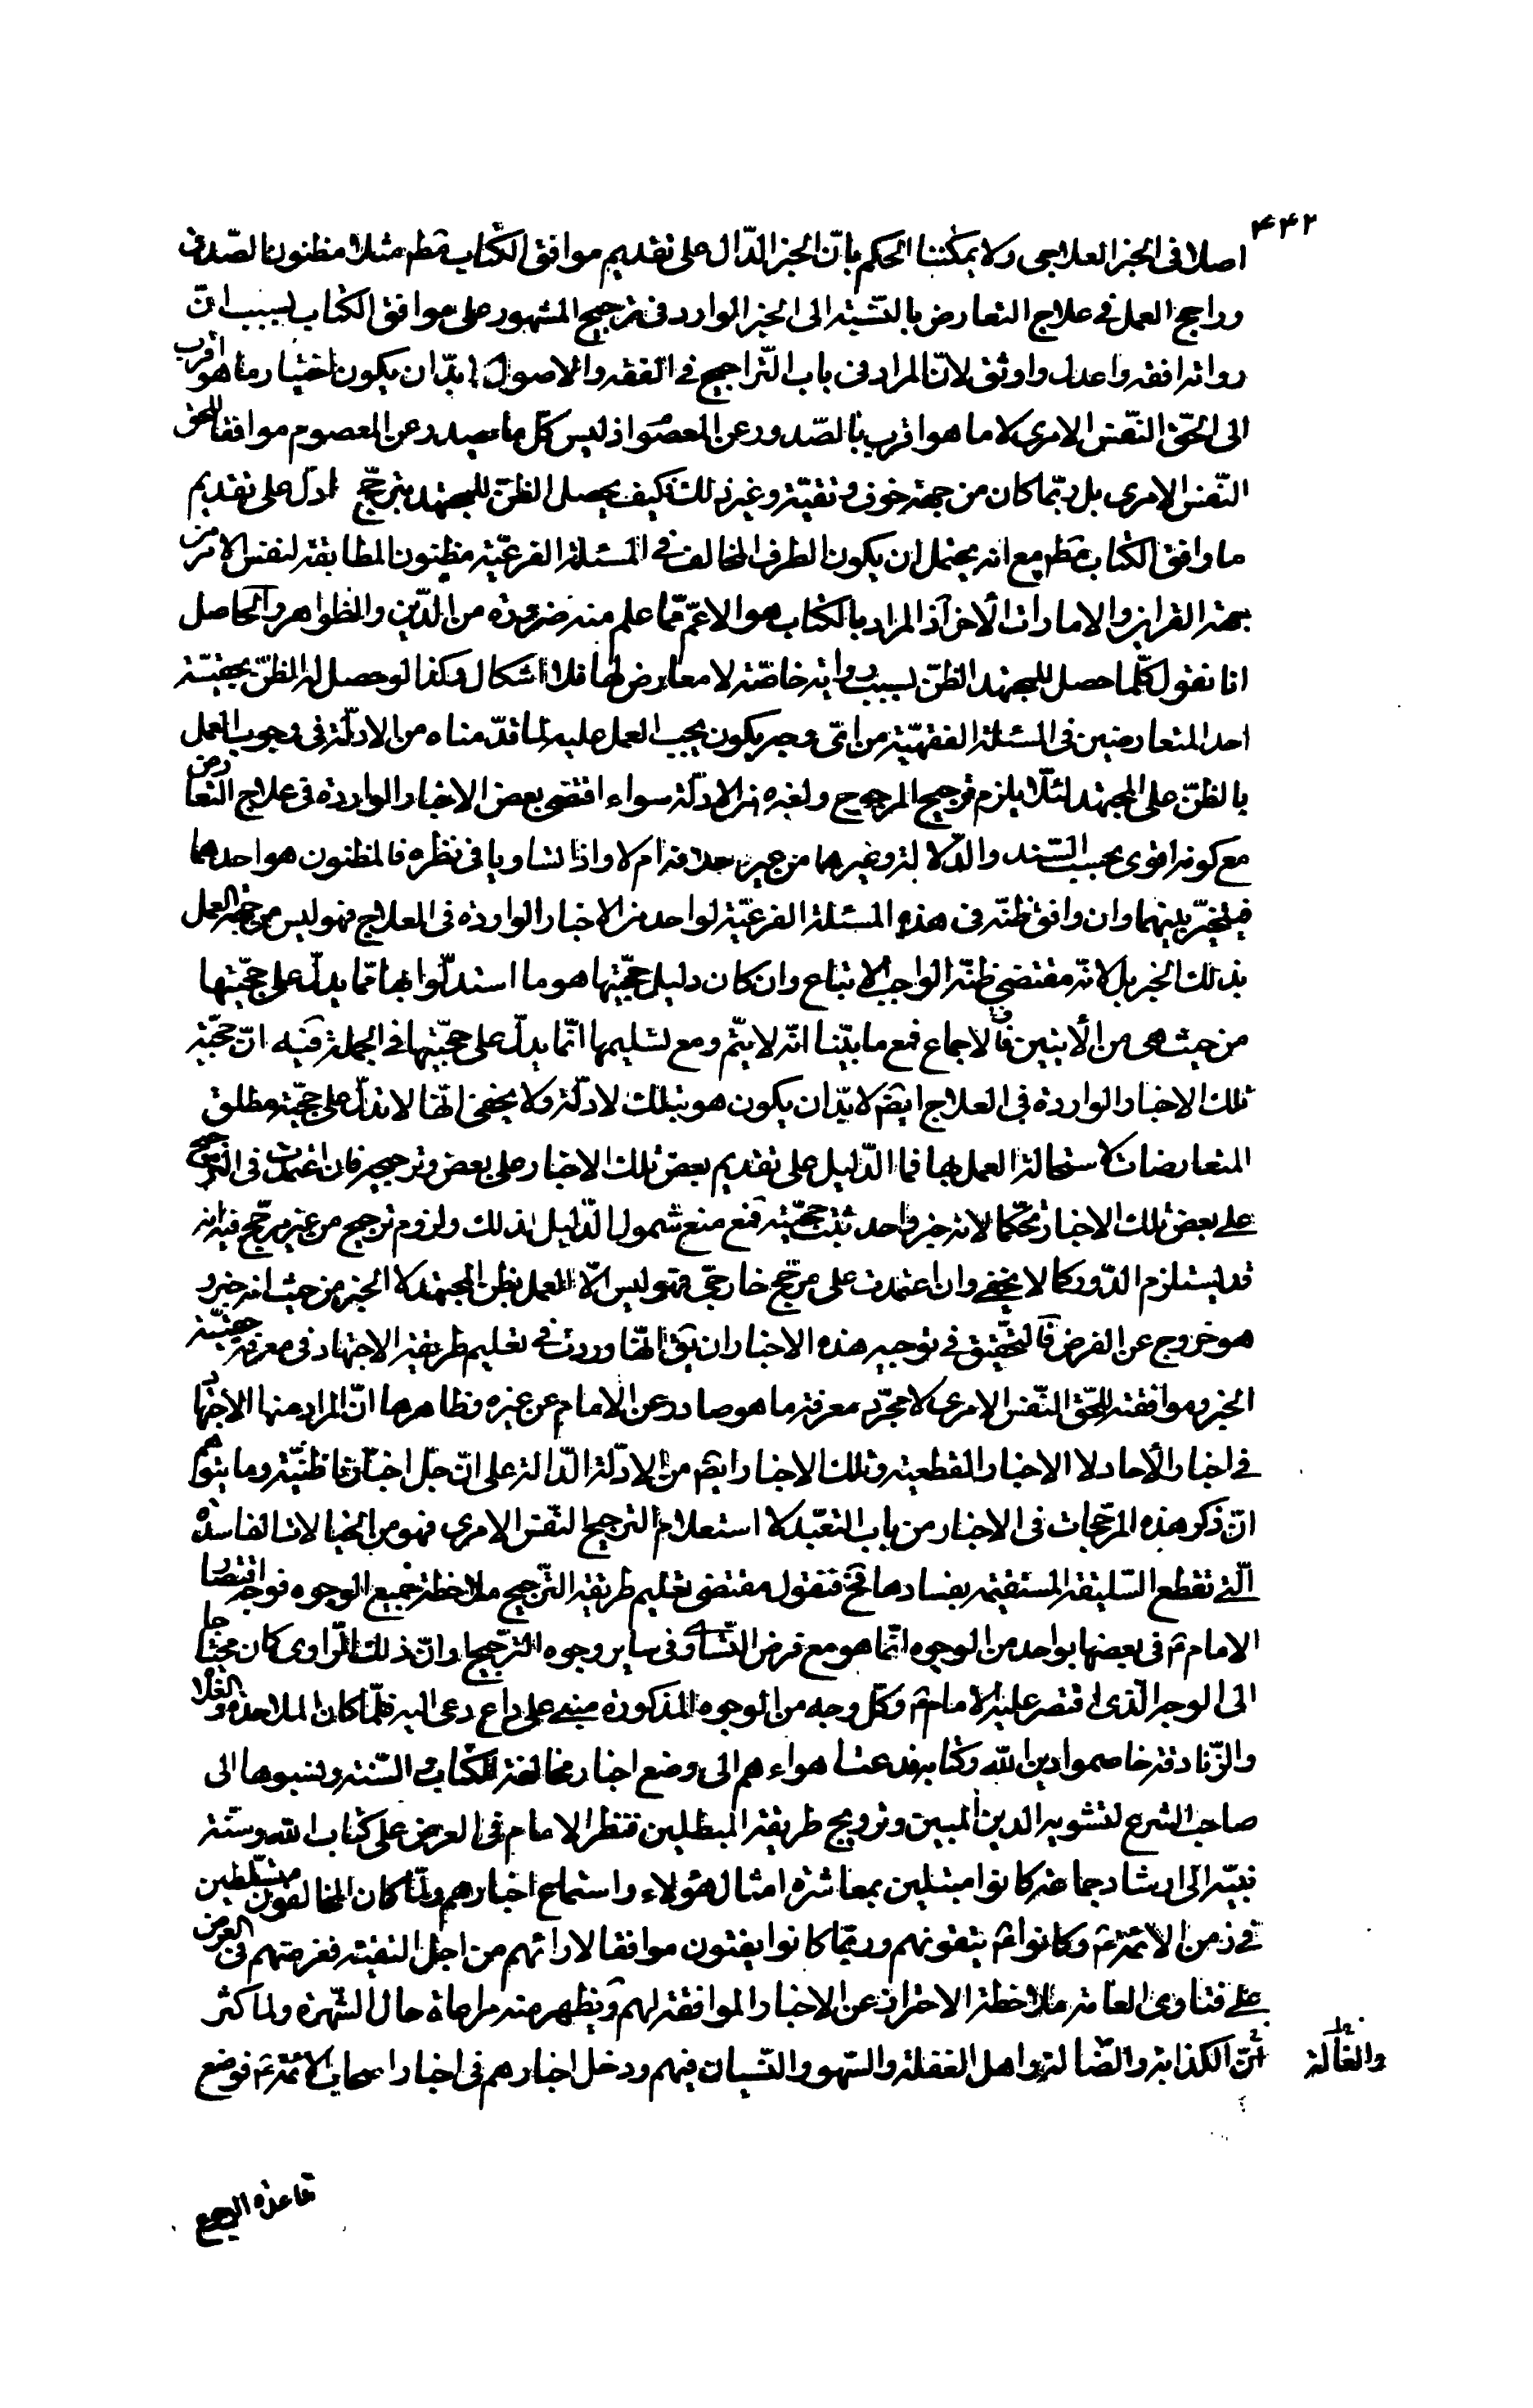 ۴۴۲
اصلا فى الخبر العلاجى ولا يمكننا الحكم بانّ الخبر الدّال على تقديم موافق الكتاب مط مثلا مظنون الصّدق
وراجح العمل فى علاج التعارض بالنّسبة الى الخبر الوارد فى ترجيح المشهور على موافق الكتاب بسبب انّ
رواته افقه واعدل واوثق لانّ المراد فى باب التّراجيح فى الفقه والاصول لا بدّ ان يكون اختيار ما هو اقرب
الى الحقّ النّفس الامرى لا ما هو اقرب بالصّدور عن المعصوم اذ ليس كلّ ما يصدر عن المعصوم موافقا للحق
النّفس الامرى بل ربّما كان من جهة خوف وتقيّة وغير ذلك فكيف يحصل الظنّ للمجتهد بترجّح ادلّ على تقديم
ما وافق الكتاب مط مع انه يحتمل ان يكون الطرف المخالف فى المسئلة الفرعيّة مظنون المطابقة لنفس الامر من
جهة القراين والامارات الأخر اذ المراد بالكتاب هو الاعمّ ممّا علم منه ضرورة من الدّين والظواهر والحاصل
انا نقول كلّما حصل للمجتهد الظنّ بسبب رواية خاصّة لا معارض لها فلا اشكال وكذا لو حصل له الظنّ بحقيّة
احد المتعارضين فى المسئلة الفقهيّة من اىّ وجه يكون يجب العمل عليه لما قدّمناه من الادلّة فى وجوب العمل
بالظنّ على المجتهد لئلّا يلزم ترجيح المرجوح ولغيره من الادلّة سواء اقتضى بعض الاخبار الواردة فى علاج التعارض
مع كونه اقوى بحسب السّند والدّلالة وغيرهما من جهة خلافه ام لا واذا تساويا فى نظره فالمظنون هو احدهما
فيتخيّر بينهما وان وافق ظنّه فى هذه المسئلة الفرعيّة لواحد من الاخبار الواردة فى العلاج فهو ليس من جهة العمل
بذلك الخبر بل لانّه مقتضى ظنّه الواجب الاتباع وان كان دليل حجّيّتها هو ما استدلّوا بها ممّا يدلّ على حجّيّتها
من حيث هى من الأيتين والاجماع فمع ما بيّنا انّه لا يتمّ ومع تسليمها انّما يدلّ على حجّيّتها فى الجملة ففيه انّ حجّيّة
تلك الاخبار الواردة فى العلاج ايضا لا بدّ ان يكون هو بتلك الادلّة ولا يخفى انّها لا تدلّ على حجّيّة مطلق
المتعارضات لاستحالة العمل بها فما الدّليل على تقديم بعض تلك الاخبار على بعض وترجيحه فان اعتمدت فى الترجيح
على بعض تلك الاخبار تحكّما لانه خبر واحد ثبت حجّيّته فمع منع شمول الدّليل لذلك ولزوم ترجيح من غير مرجّح فيه انه
قد يستلزم الدّور كما لا يخفى وان اعتمدت على مرجّح خارجىّ فهو ليس الّا العمل بظن المجتهد لا الخبر من حيث انه خبر و
هو خروج عن الفرض فالتحقيق فى توجيه هذه الاخبار ان يق انّها وردت فى تعليم طريقة الاجتهاد فى معرفة حقيّة
الخبر وموافقته للحّق النّفس الامرى لا مجرّد معرفة ما هو صادر عن الامام عن غيره وظاهرها انّ المراد منها الاجتهاد
فى اخبار الأحاد لا الاخبار القطعية وتلك الاخبار ايضا من الادلّة الدّالة على انّ جلّ اخبارنا ظنّيّة وما يتوهم
انّ ذكر هذه المرجّحات فى الاخبار من باب التعبّد لا استعلام الترجيح النّفس الامرى فهو من الخيالات الفاسدة
الّتى تقطع السّليقة المستقيمة بفسادها فح فنقول مقتضى تعليم طريقة التّرجيح ملاحظة جميع الوجوه فوجه اقتصار
الامام ع فى بعضها بواحد من الوجوه انّما هو مع فرض التّساوى فى ساير وجوه التّرجيح او انّ ذلك الرّاوى كان محتاجا
الى الوجه الّذى اقتصر عليه الامام ع وكلّ وجه من الوجوه المذكورة مبنى على داع دعى اليه فلمّا كان الملاحدة والغلاة
والزّنادقة خاصموا دين الله وكتابه فدعتنا هواءهم الى وضع اخبار مخالفة للكتاب والسّنة ونسبوها الى
صاحب الشرع لتشويه الدين المبين وترويج طريقة المبطلين فنظر الامام فى العرض على كتاب الله وسنّة
نبيّه الى ارشاد جماعة كانوا مبتلين بمعاشرة امثال هؤلاء واستماع اخبارهم ولمّا كان المخالفون متسلّطين
فى زمن الائمّة ع وكانوا ع يتقونهم وربّما كانوا يفتون موافقا لارائهم من اجل التقيّة فغرضهم فى العرض
على فتاوى العامّة ملاحظة الاحتراز عن الاخبار الموافقة لهم ويظهر منه مراعاة حال الشّهرة ولما كثر
انّ الكذابة والضّالة واهل الغفلة والسّهو والنّسيان فيهم ودخل اخبارهم فى اخبار اصحاب الائمّة ع فوضع
والغالة
قاعدة الرجوع